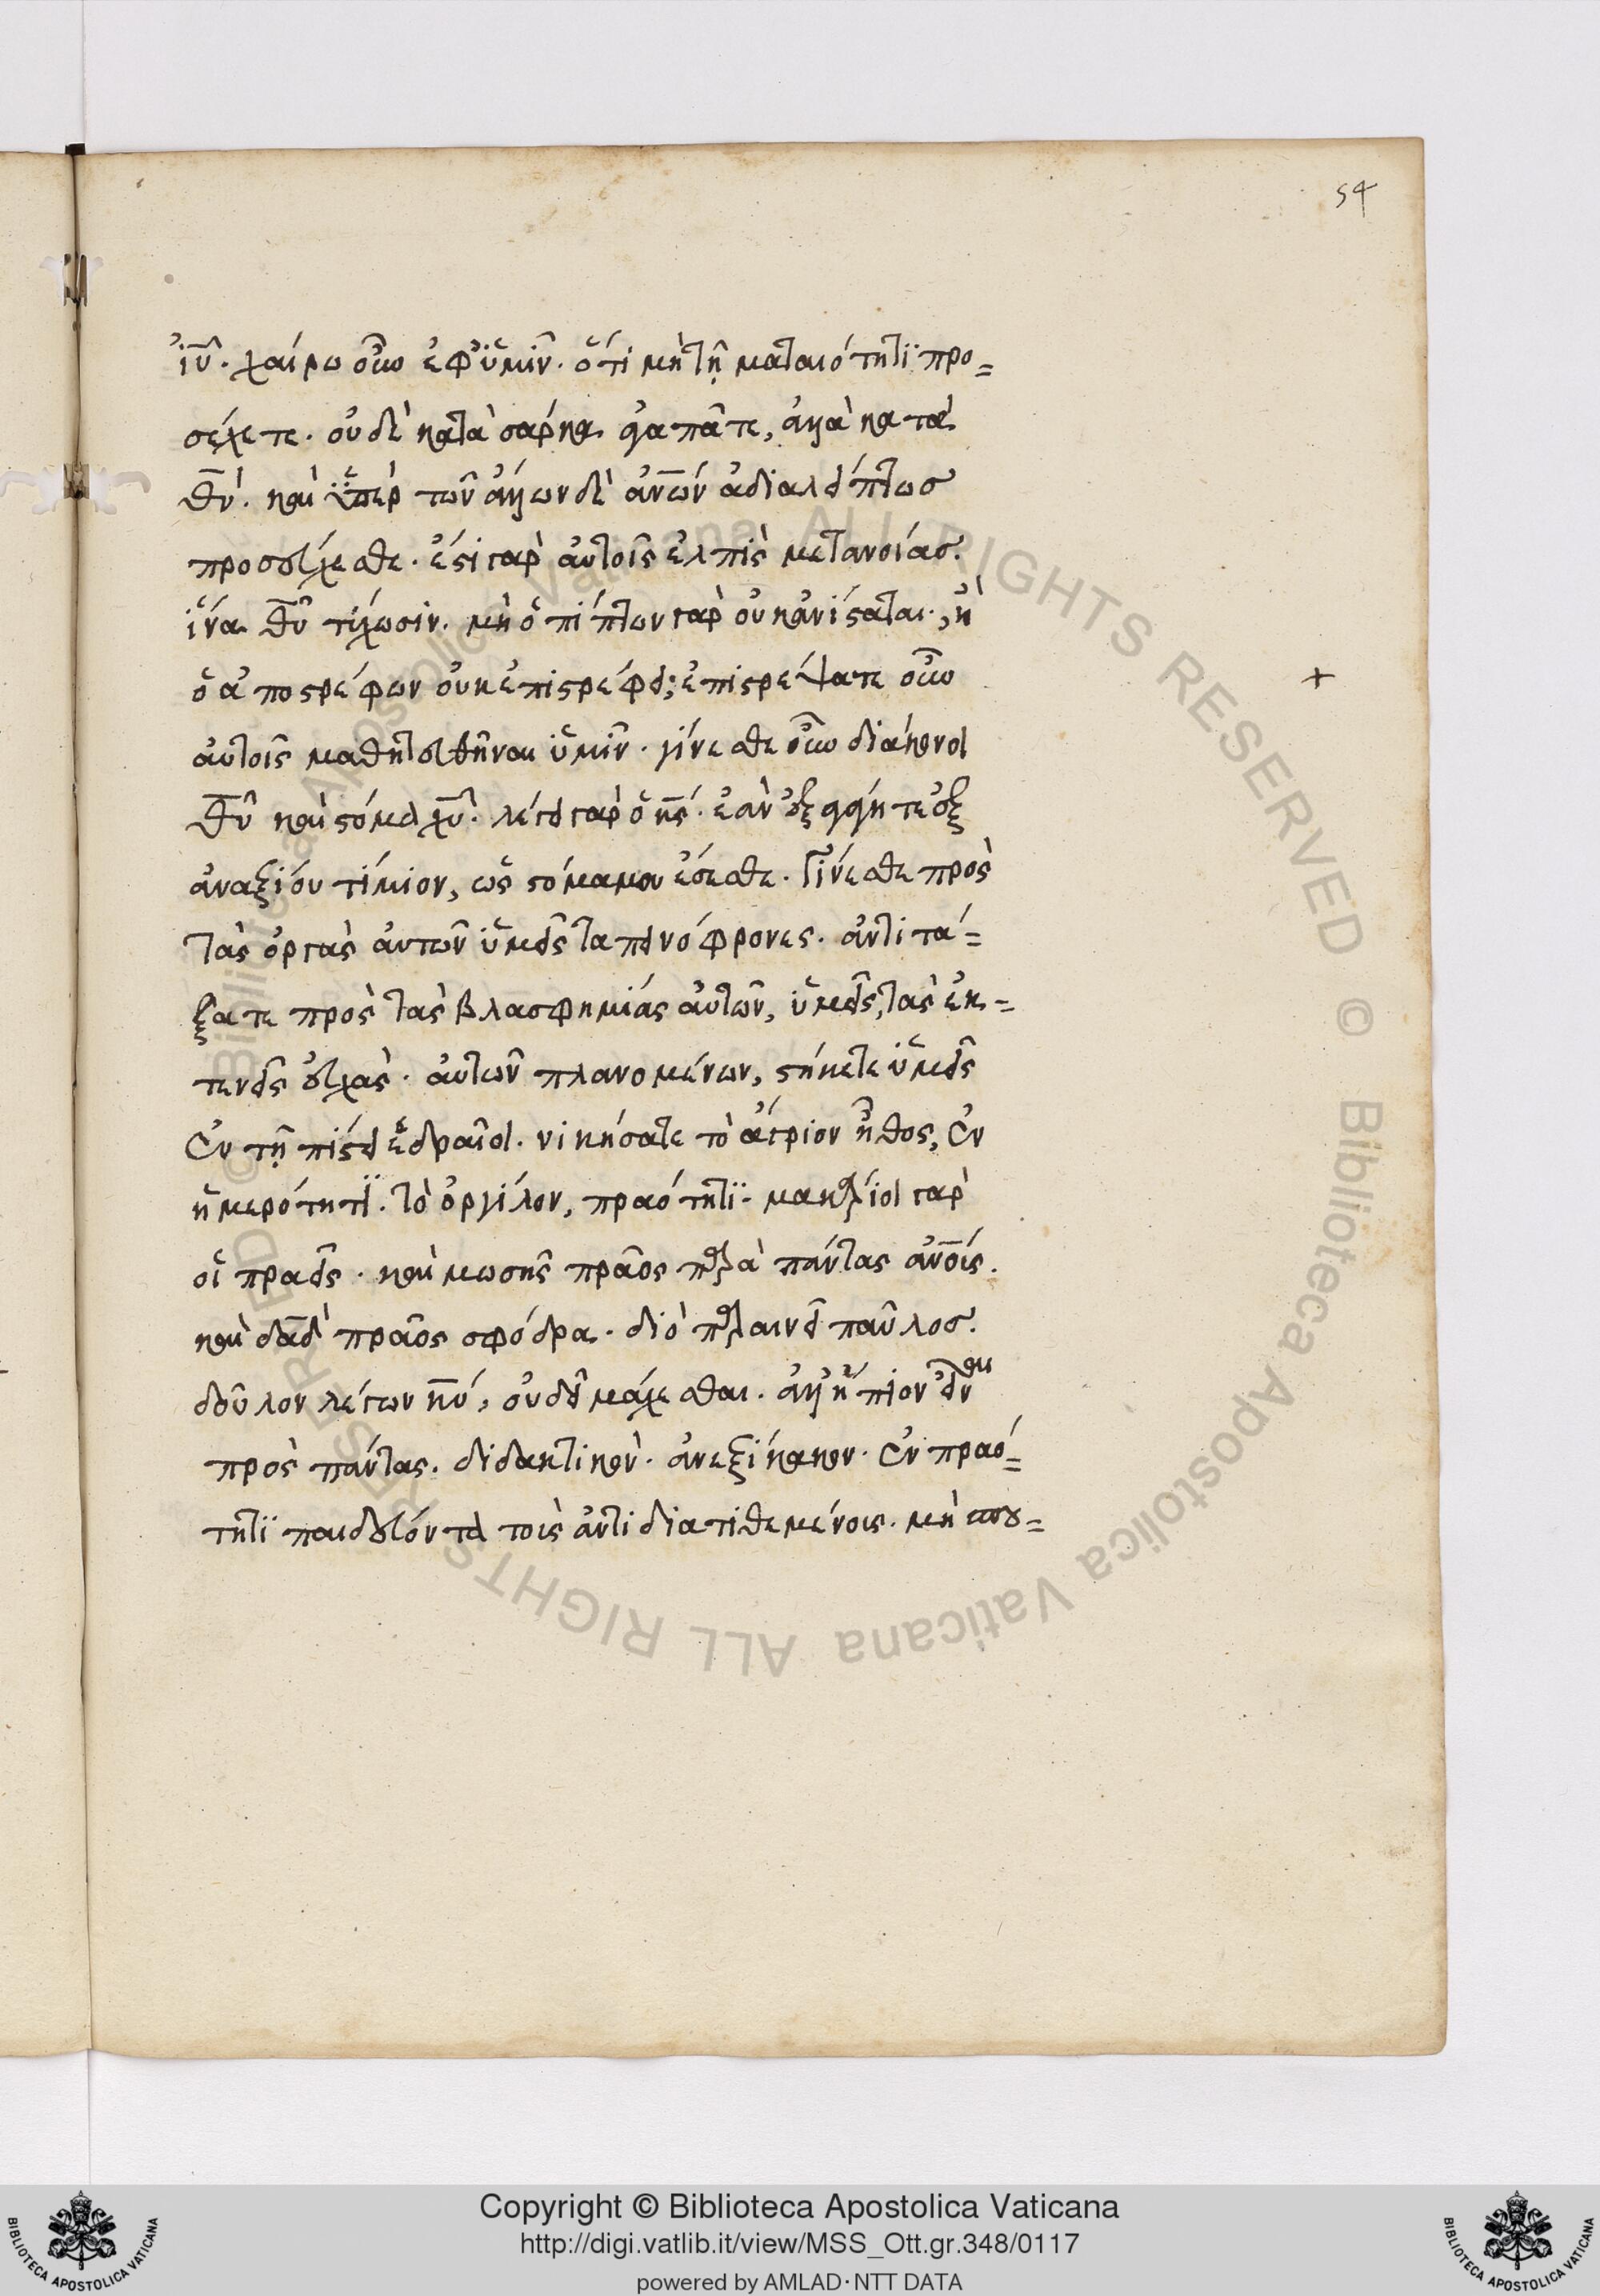 54
ἰῦ. χαίρω οὖν ἐφ' ὑμῖν. ὅτι μὴ τῇ ματαιότητι προ=
σέχετε. οὐδὲ κατὰ σάρκα ἀγαπᾶτε, ἀλλὰ κατὰ
θν̅. καὶ ὑπὲρ τῶν ἄλλων δὲ ἀν̅ων ἀδιαλείπτως
προσεύχεσθε. ἔστι γὰρ αὐτοῖς ἐλπὶς μετανοίας.
ἵνα θυ̅ τύχωσιν. μὴ ὁ πίπτων γὰρ οὐκ ἀνίσταται, ἢ
ὁ ἀποστρέφων οὐκ ἐπιστρέφει; ἐπιστρέψατε οὖν
αὐτοῖς μαθητευθῆναι ὑμῖν. γίνεσθε οὖν διάκονοι
θυ̅ καὶ στόμα χυ̅. λέγει γὰρ ὁ κς̅. ἐὰν ἐξαγάγητε ἐξ
ἀναξίου τίμιον, ὡς στόμα μου ἔσεσθε. Γίνεσθε πρὸς
τὰς ὀργὰς αὐτῶν ὑμεῖς ταπεινόφρονες. ἀντιτά=
ξατε πρὸς τὰς βλασφημίας αὐτῶν, ὑμεῖς, τὰς ἐκ=
τενεῖς εὐχὰς. αὐτῶν πλανομένων, στήκετε ὑμεῖς
ἐν τῇ πίστει ἑδραῖοι. νικήσατε τὸ ἄγριον ἦθος, ἐν
ἡμερότητι. τὸ ὀργίλον, πραότητι. μακάριοι γὰρ
οἱ πραεῖς. καὶ μωσῆς πρᾶος παρὰ πάντας ἀν̅ους.
καὶ δα̅δ πρᾶος σφόδρα. διὸ παραινεῖ παῦλος.
δοῦλον λέγων κυ̅, οὐ δεῖ μάχεσθαι. ἀλλ' ἤπιον εἶναι
πρὸς πάντας. διδακτικὸν. ἀνεξίκακον. ἐν πραό=
τητι παιδεύοντα τοὺς ἀντιδιατιθεμένους. μὴ σπου=
+
Copyright © Biblioteca Apostolica Vaticana
http://digi.vatlib.it/view/MSS_Ott.gr.348/0117
powered by AMLAD·NTT DATA
BIBLIOTECA APOSTOLICA VATICANA
BIBLIOTECA APOSTOLICA VATICANA
© Biblioteca Apostolica Vaticana ALL RIGHTS RESERVED © Biblioteca Apostolica Vaticana ALL RIGHTS RESERVED